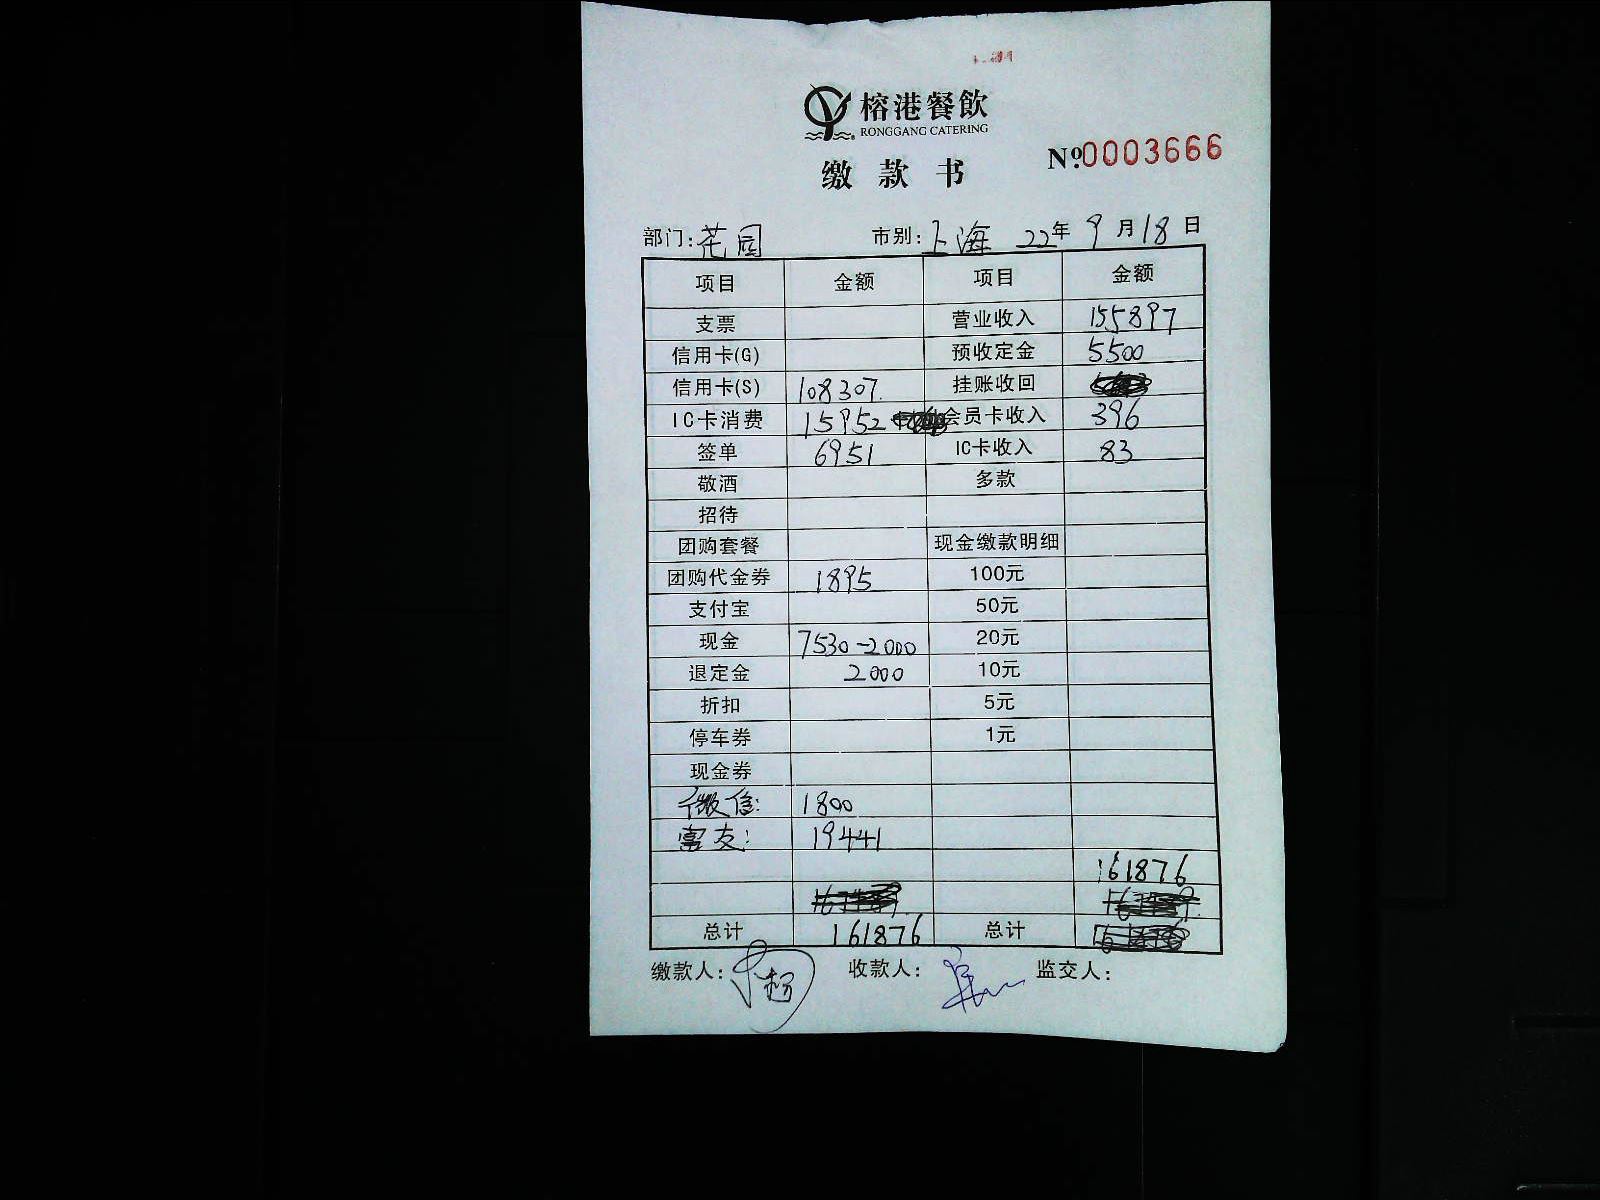 榕港餐飲
RONGGANG CATERING
缴款书
Nº:0003666
部门:花园 市别:上海 22年9月18日
项目 金额 项目 金额
支票 营业收入 155897
信用卡(G) 预收定金 5500
信用卡(S) 108307. 挂账收回
IC卡消费 15952 会员卡收入 396
签单 6951 IC卡收入 83
敬酒 多款
招待
团购套餐 现金缴款明细
团购代金券 1895 100元
支付宝 50元
现金 7530-2000 20元
退定金 2000 10元
折扣 5元
停车券 1元
现金券
微信: 1800
富友: 19441
161876
总计 161876 总计
缴款人: 收款人: 监交人: